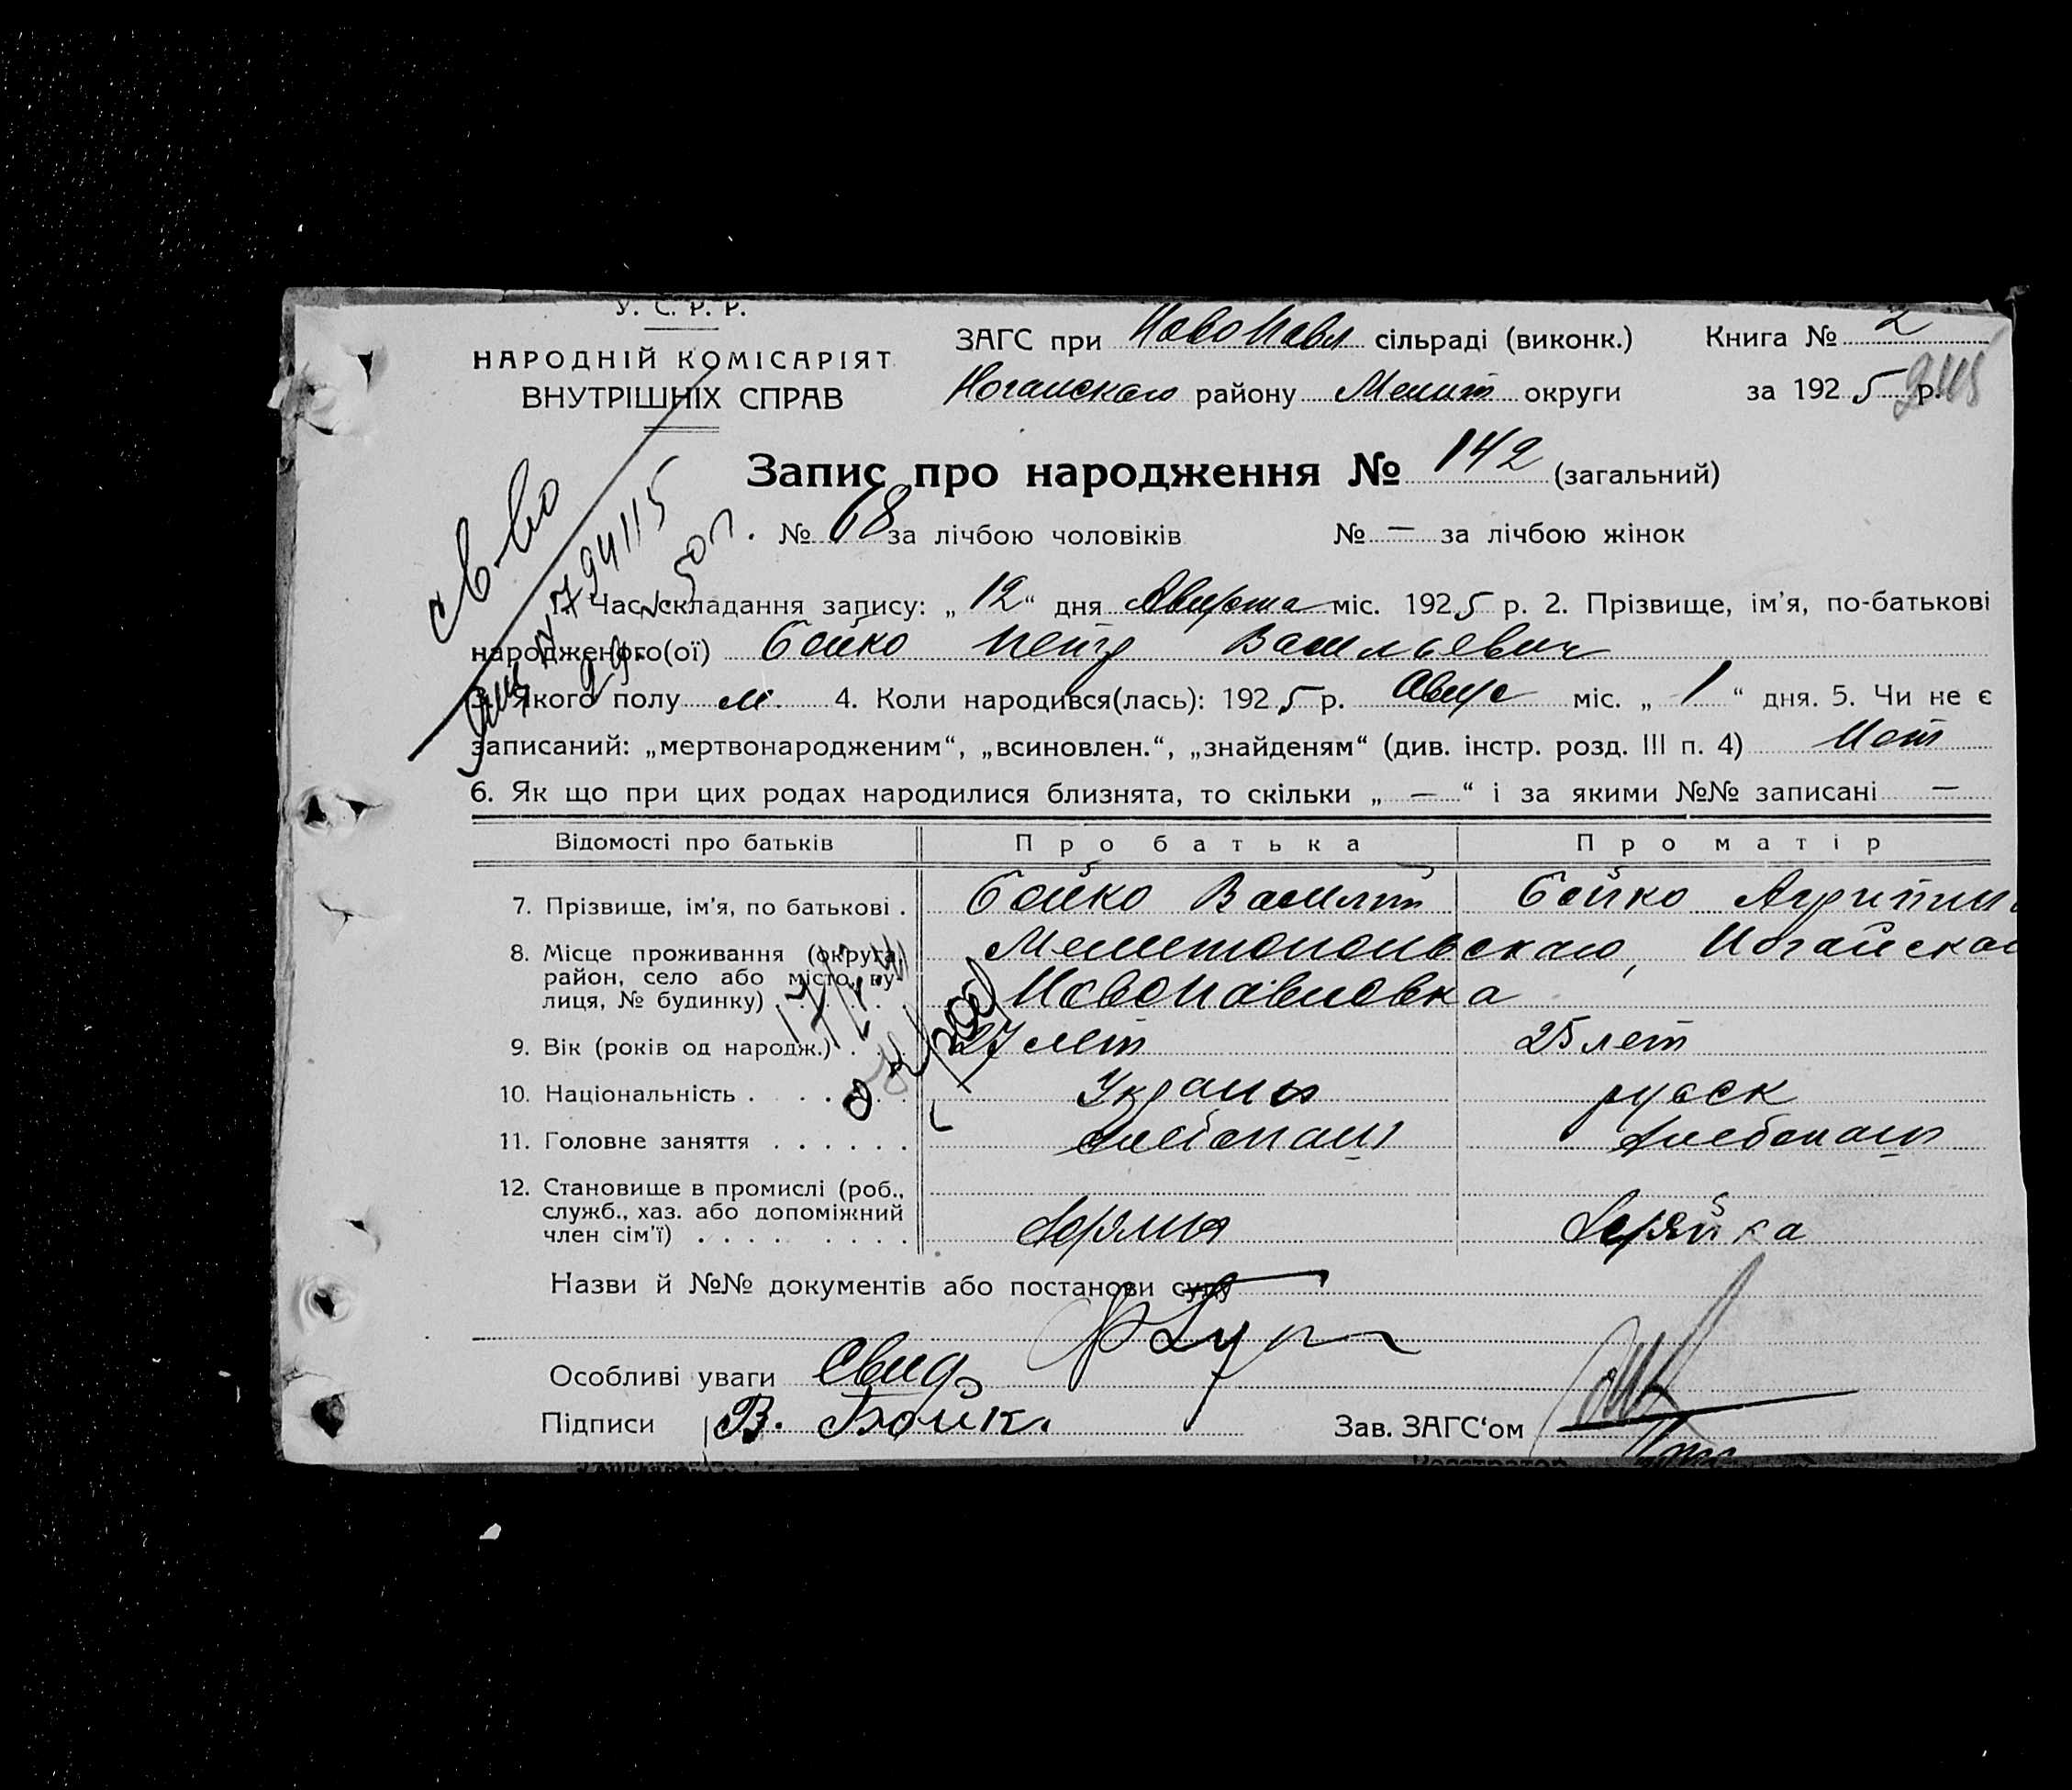 У. С. Р. Р.
НАРОДНІЙ КОМІСАРІЯТ
ВНУТРІШНІХ СПРАВ
ЗАГС при НовоПавл сільраді (виконк.) Книга № 2
Ногайского району Мелит округи за 1925 р.
Запис про народження № 142 (загальний)
№ 68 за лічбою чоловіків № — за лічбою жінок
св-во
1. Час складання запису: „12“ дня Августа міс. 1925 р. 2. Прізвище, ім'я, по-батькові
народженого(ої) Бойко Петр Васильевич
3. Якого полу м. 4. Коли народився(лась): 1925 р. Авгус міс. „1“ дня. 5. Чи не є
записаний: „мертвонародженим“, „всиновлен.“, „знайденям“ (див. інстр. розд. III п. 4) Нет
6. Як що при цих родах народилися близнята, то скільки „ — “ і за якими №№ записані —
Відомості про батьків Про батька Про матір
7. Прізвище, ім'я, по батькові . Бойко Василий Бойко
8. Місце проживання (округа, Мелитопольскаго, Ногайскаго
район, село або місто, ву-
лиця, № будинку) Новопавловка
9. Вік (років од народж.) . . . 27 лет 25 лет
10. Національність . . . . . . Украин русск
11. Головне заняття . . . . . . хлебопаш хлебопаш
12. Становище в промислі (роб.,
служб., хаз. або допоміжний
член сім'ї) . . . . . . . . хозяин хозяйка
Назви й №№ документів або постанови суду
Особливі уваги Свид
Підписи В. Бойк. Зав. ЗАГС‘ом